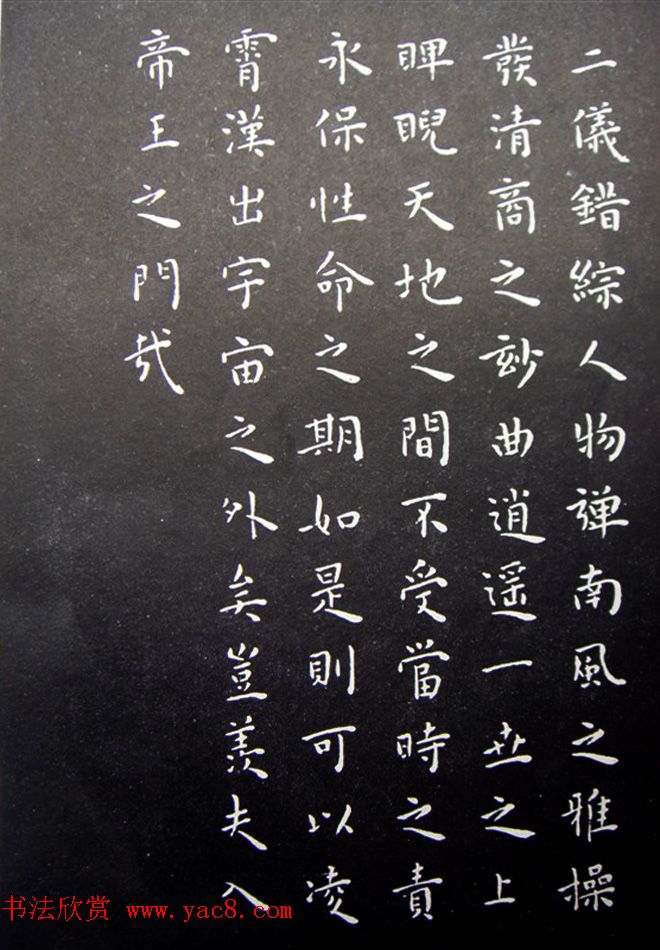 二儀錯綜人物彈南風之雅操
發清商之玅曲逍遥一世之上
睥睨天地之間不受當時之責
永保性命之期如是則可以凌
霄漢出宇宙之外矣豈羨夫入
帝王之門哉
书法欣赏 www.yac8.com